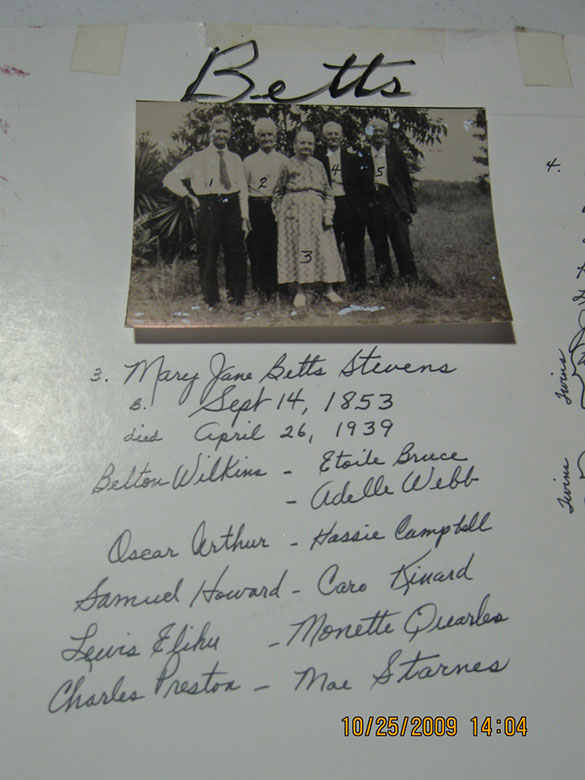 Betts
1 2 3 4 5
3. Mary Jane Betts Stevens
B. Sept 14, 1853
died April 26, 1939
Belton Wilkins - Etoile Bruce
- Adelle Webb
Oscar Arthur - Hassie Campbell
Samuel Howard - Caro Kinard
Lewis Elihu - Monette Quarles
Charles Preston - Mae Starnes
4.
Twins
Twins
10/25/2009 14:04